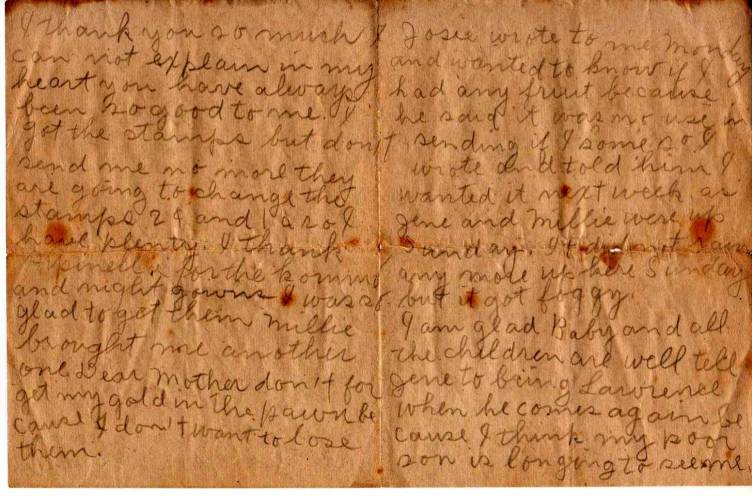 I thank you so much I
can not explain in my
heart you have always
been so good to me. I
got the stamps but don't
send me no more they
are going to change the
stamps 2¢ and 1¢ so I
have plenty. I thank
for the kommo
and night gowns I was so
glad to get them Millie
brought me another
one Dear Mother don't for
get my gold in the pawn be
cause I don't want to lose
them.
Josie wrote to me Monday
and wanted to know if I
had any fruit because
he said it was no use in
sending if I some so I
wrote and told him I
wanted it next week as
Jene and Millie were up
Sunday. It did not rain
any more up here Sunday
but it got foggy.
I am glad Baby and all
the children are well tell
Jene to bring Lawrence
when he comes again be
cause I think my poor
son is longing to see me.